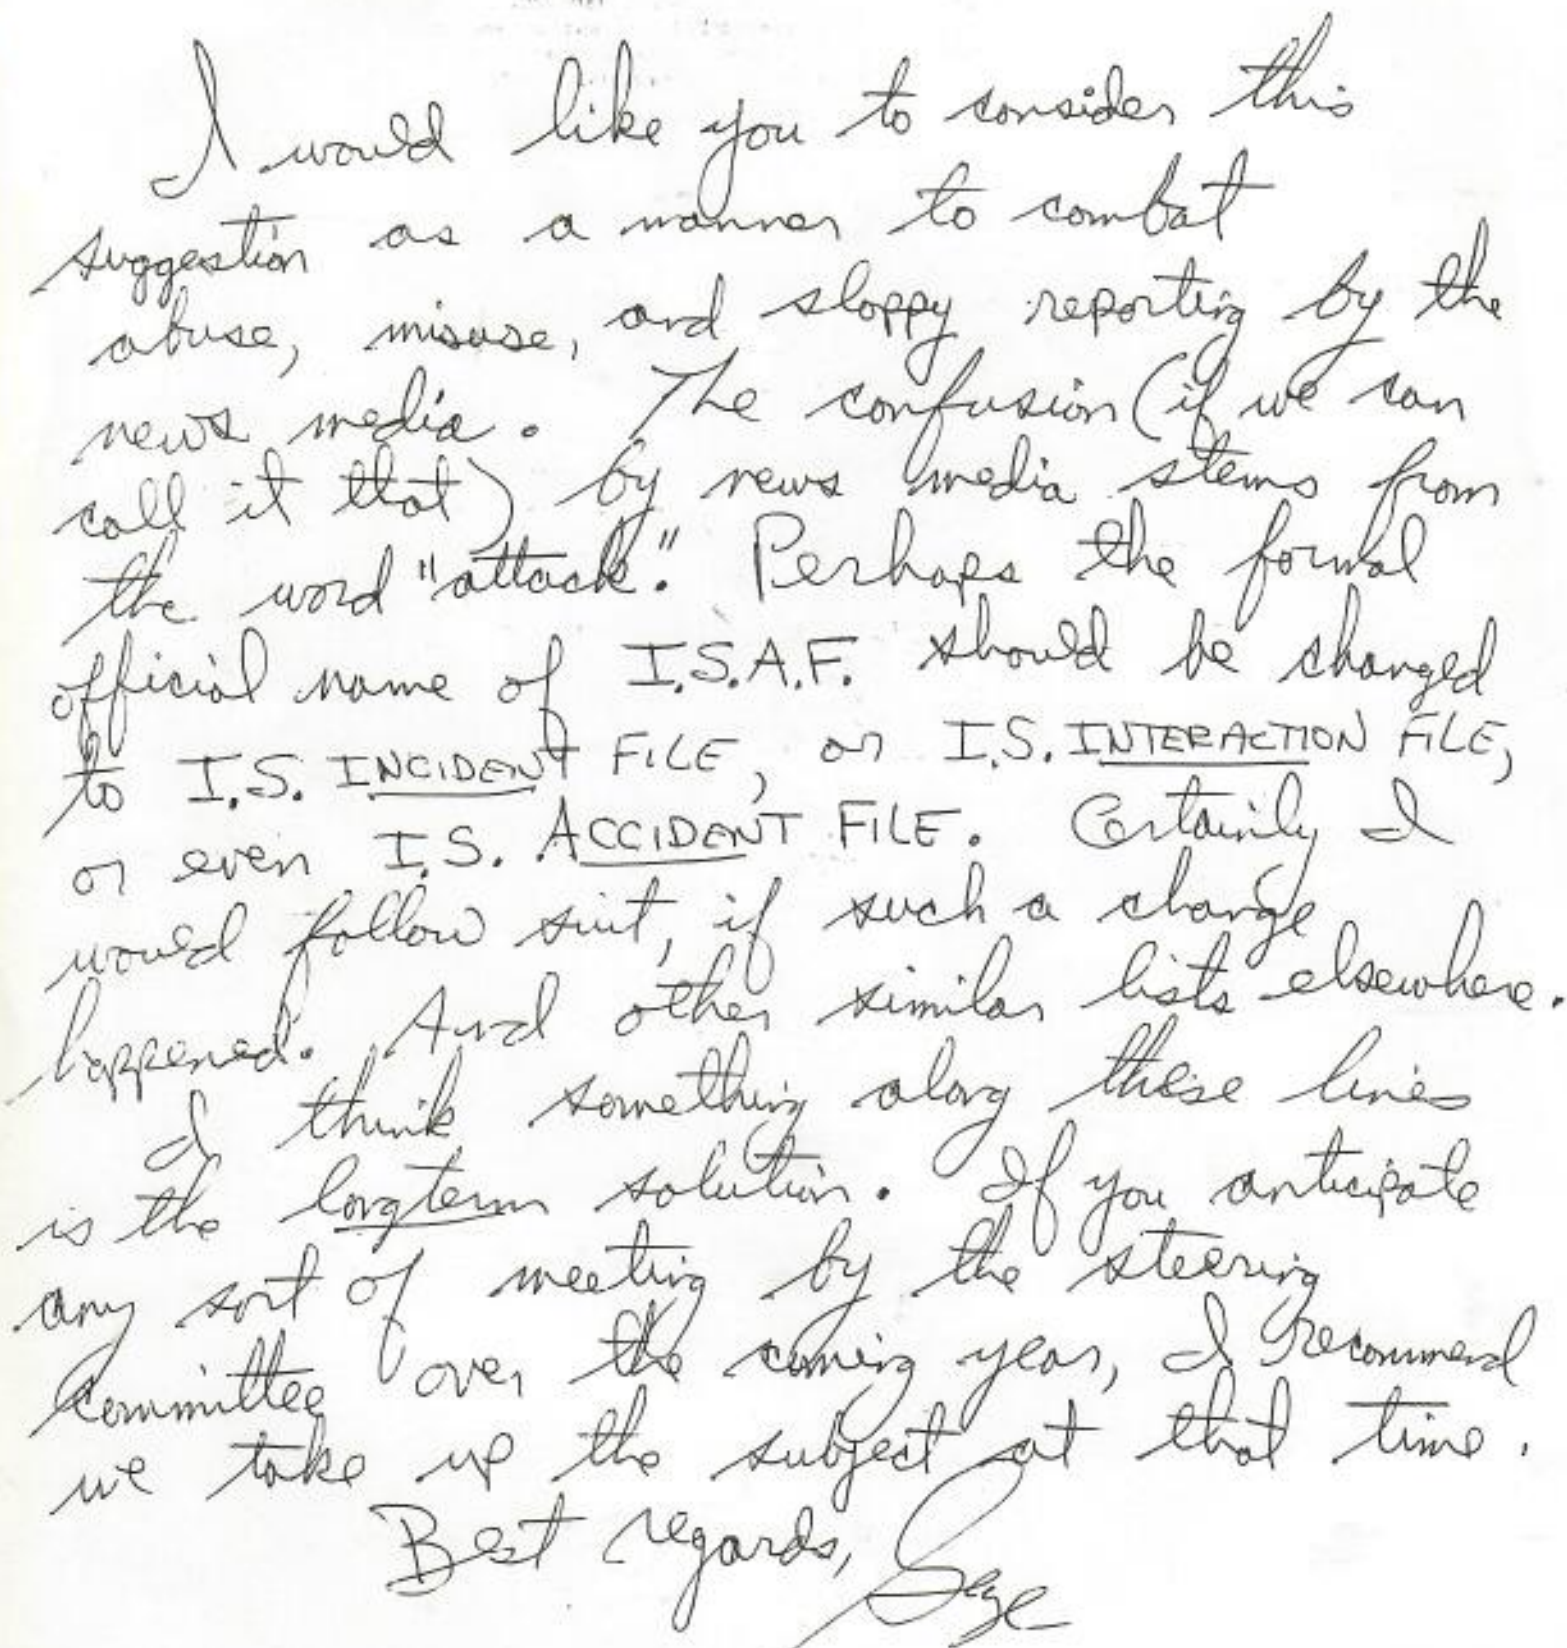 I would like you to consider this
suggestion as a manner to combat
abuse, misuse, and sloppy reporting by the
news media. The confusion (if we can
call it that) by news media stems from
the word "attack." Perhaps the formal
official name of I.S.A.F. should be changed
to I.S. INCIDENT FILE, or I.S. INTERACTION FILE,
or even I.S. ACCIDENT FILE. Certainly I
would follow suit, if such a change
happened. And other similar lists elsewhere.
I think something along these lines
is the longterm solution. If you anticipate
any sort of meeting by the steering
committee over the coming year, I recommend
we take up the subject at that time.
Best regards,